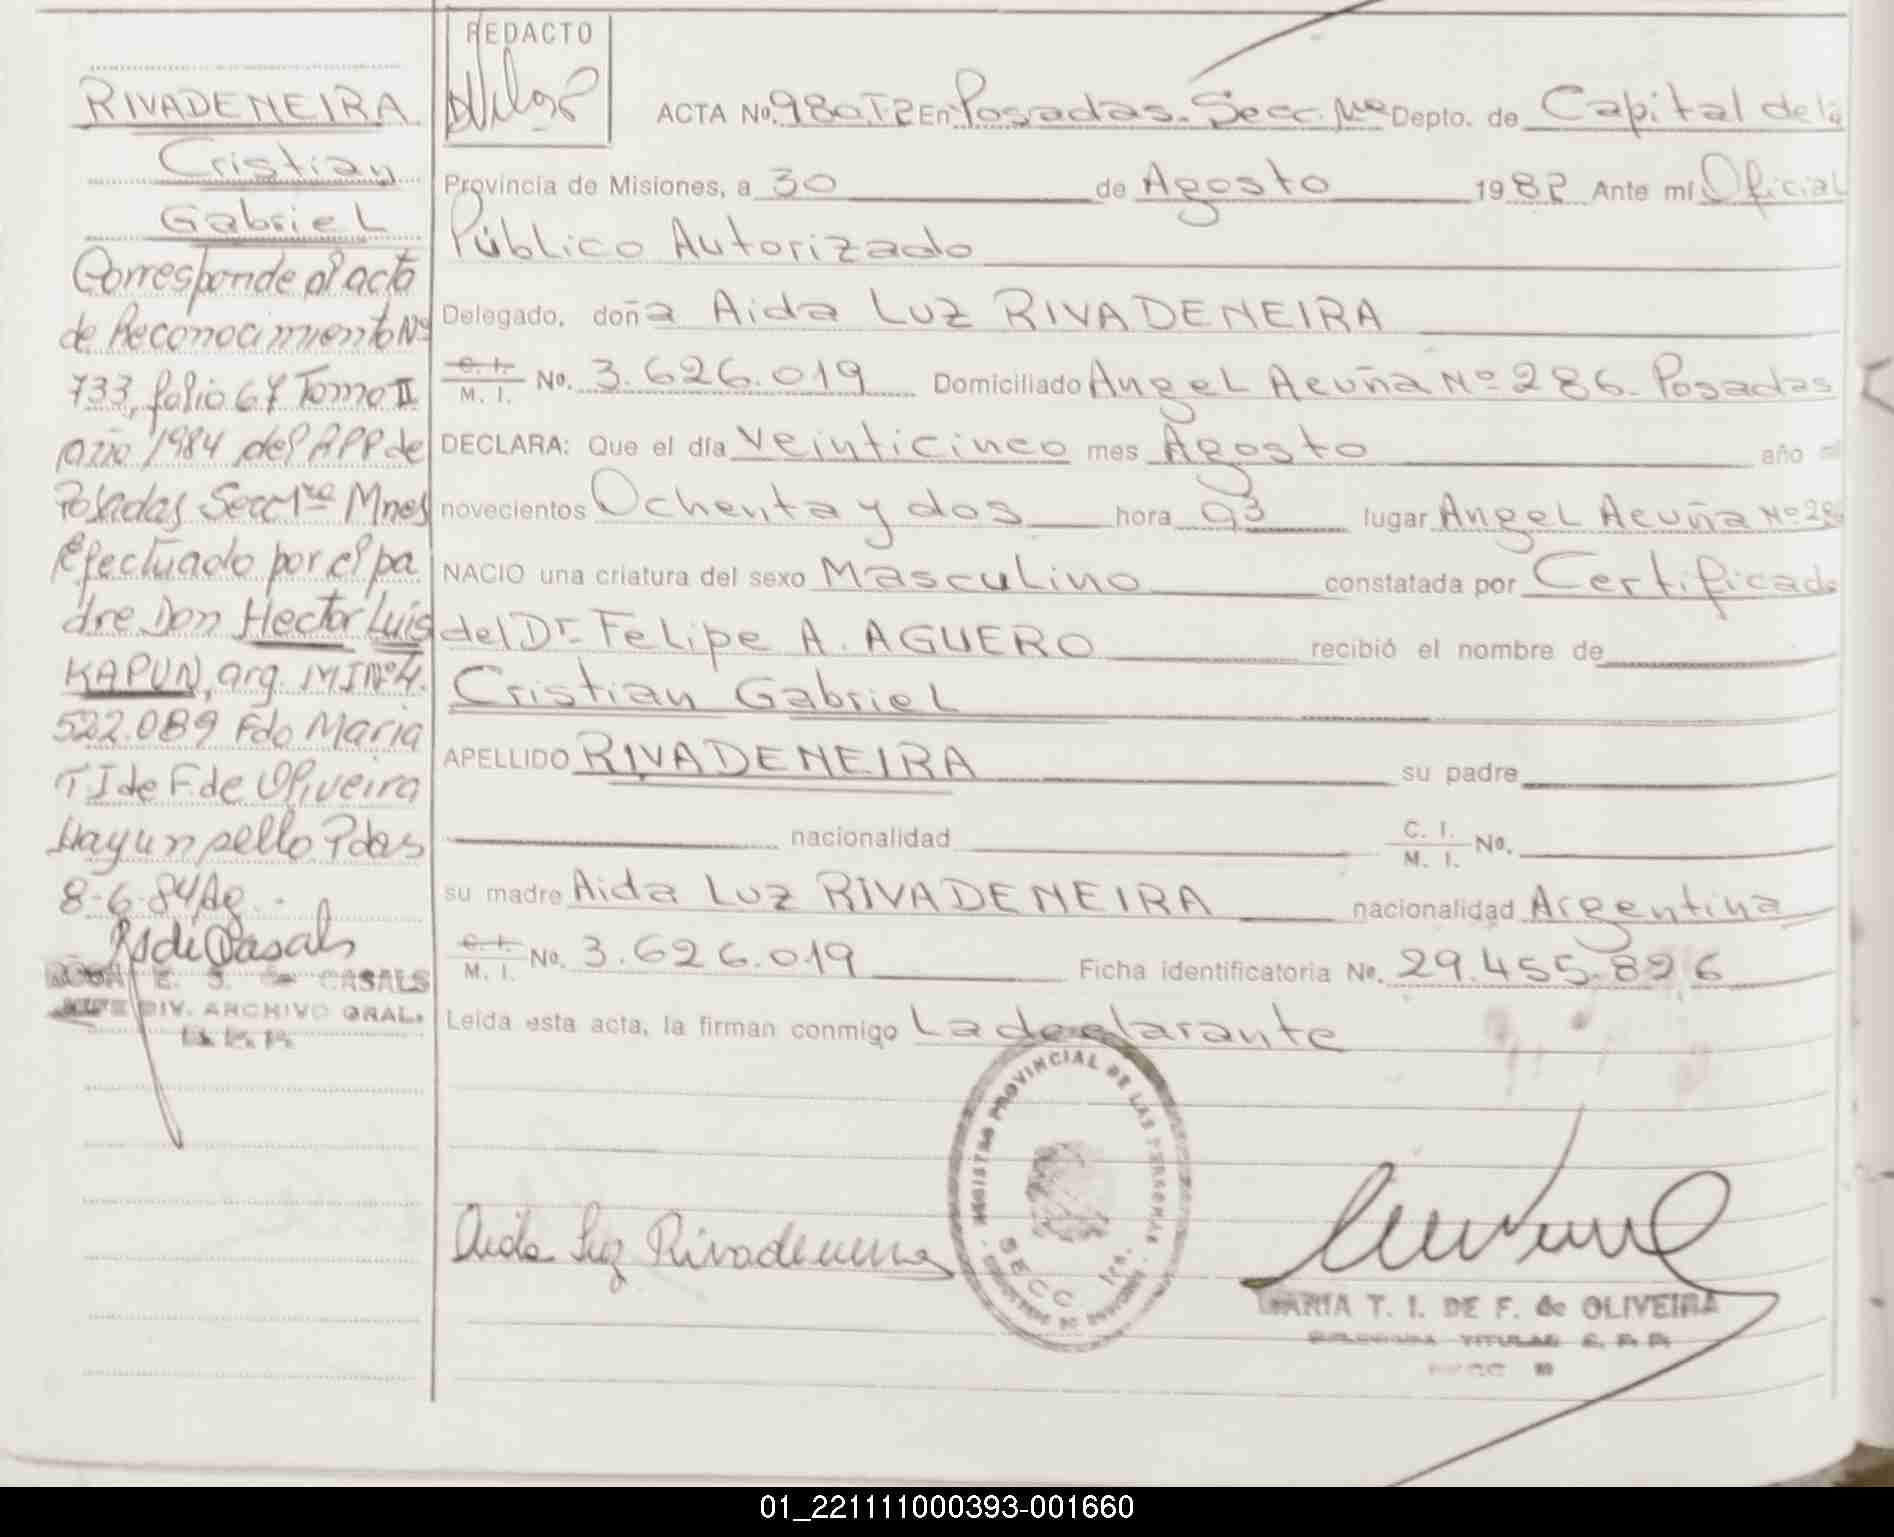 RIVADENEIRA
Cristian
Gabriel
Corresponde al acta
de Reconocimiento Nº
733, folio 67 Tomo II
año 1984 del RPP de
Posadas Secc 1ra Mnes
efectuado por el pa
dre Don Hector Luis
KAPUN, arg. MI Nº 4.
522.089 Fdo Maria
T I de F. de Oliveira
Hay un sello Pdas
8-6-84
E. S. de CASALS
JEFE DIV. ARCHIVO GRAL.
R.P.P.
REDACTO
ACTA No. 980. T2 En Posadas. Secc. 1ra Depto. de Capital de la
Provincia de Misiones, a 30 de Agosto 1982 Ante mí Oficial
Público Autorizado
Delegado, doña Aida Luz RIVADENEIRA
C. I. M. I. No. 3.626.019 Domiciliado Angel Acuña Nº 286. Posadas
DECLARA: Que el día veinticinco mes Agosto año mil
novecientos Ochenta y dos hora 03 lugar Angel Acuña Nº 286
NACIO una criatura del sexo Masculino constatada por Certificado
del Dr. Felipe A. AGUERO recibió el nombre de
Cristian Gabriel
APELLIDO RIVADENEIRA su padre
nacionalidad C. I. M. I. No.
su madre Aida Luz RIVADENEIRA nacionalidad Argentina
C. I. M. I. No. 3.626.019 Ficha identificatoria No. 29.455.826
Leída esta acta, la firman conmigo La declarante
REGISTRO PROVINCIAL DE LAS PERSONAS
SECC 1ra.
Aida Luz Rivadeneira
MARIA T. I. DE F. de OLIVEIRA
TITULAR R. P. P.
01_221111000393-001660